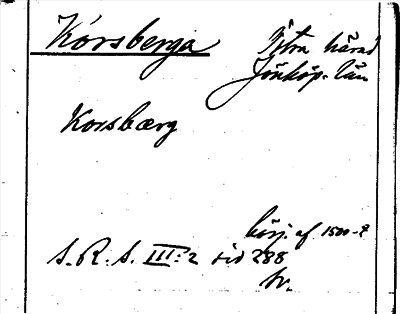 Korsberga
Östra härad
Jönköp. län
Korsbærg
börj. af 1500-t
S. R. S. III:2 sid 288
sv.